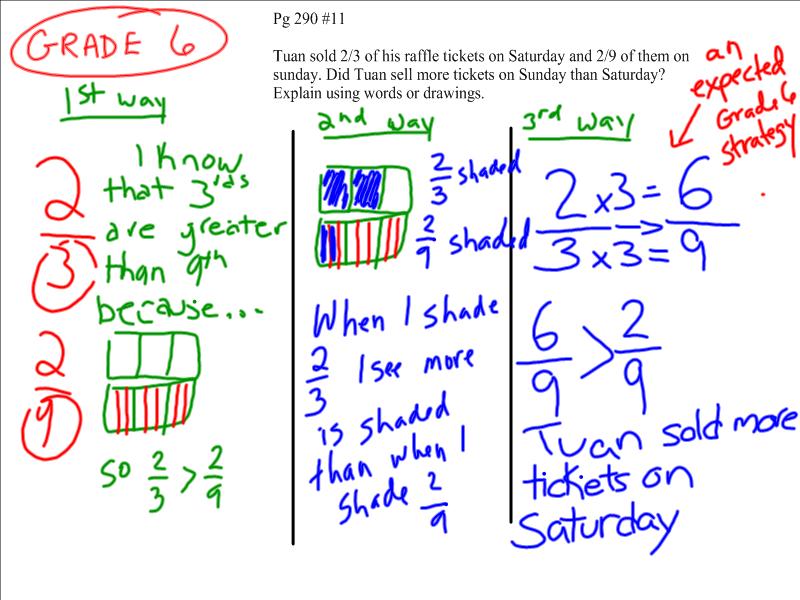 GRADE 6
Pg 290 #11
Tuan sold 2/3 of his raffle tickets on Saturday and 2/9 of them on
sunday. Did Tuan sell more tickets on Sunday than Saturday?
Explain using words or drawings.
an
expected
Grade 6
strategy
1st way
2/3
I know
that 3rds
are greater
than 9th
because...
2/9
so 2/3 > 2/9
2nd way
2/3 shaded
2/9 shaded
When I shade
2/3 I see more
is shaded
than when I
shade 2/9
3rd way
2 x3 = 6
3 x3 = 9
6/9 > 2/9
Tuan sold more
tickets on
Saturday